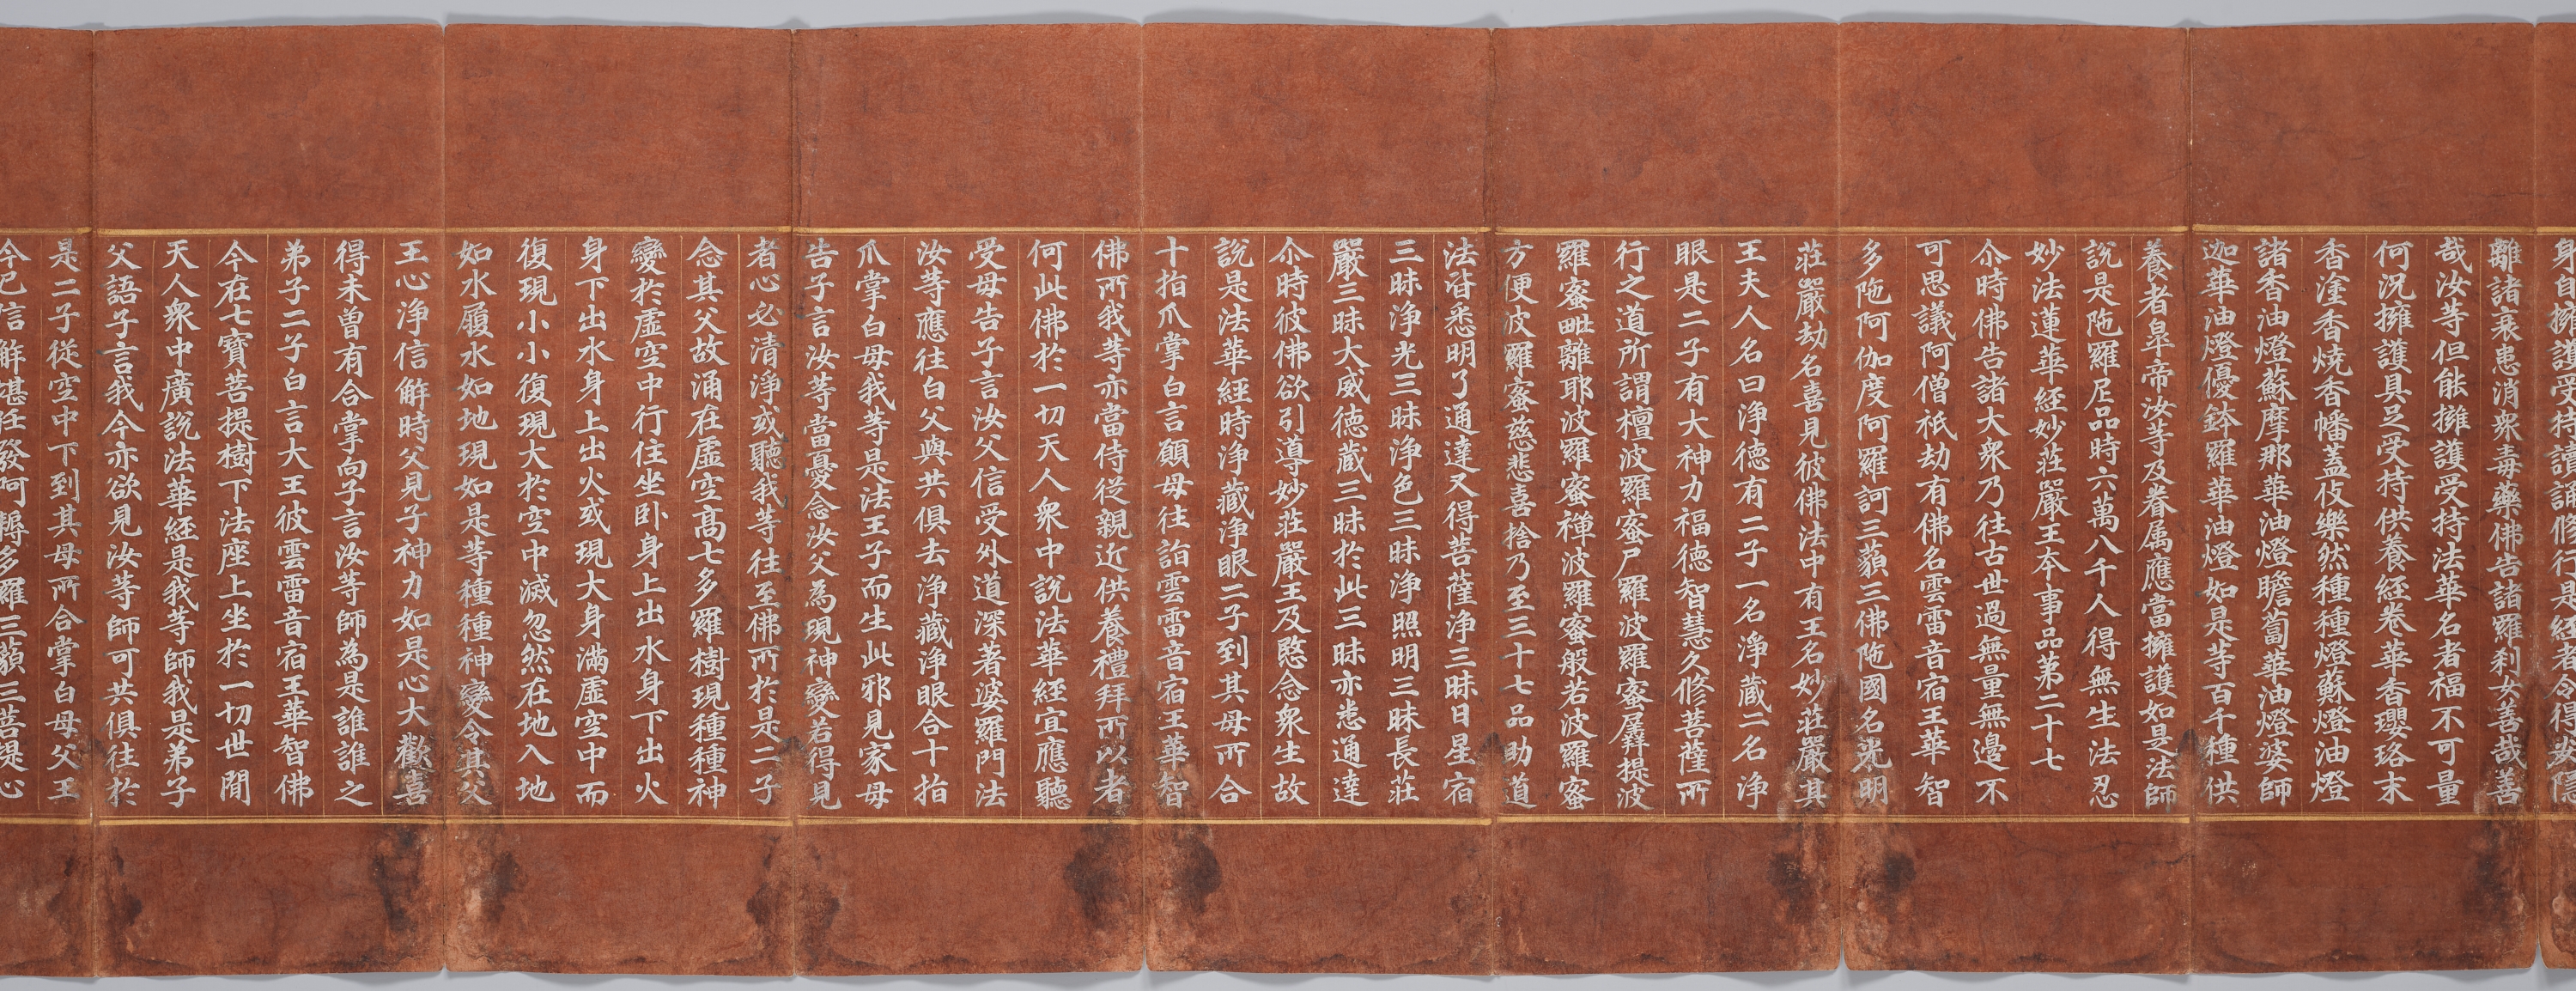 身自擁護受持讀誦脩行是經者令得安隱
離諸衰患消衆毒藥佛告諸羅刹女善哉善
哉汝等但能擁護受持法華名者福不可量
何況擁護具足受持供養經卷華香瓔珞末
香塗香燒香幡蓋伎樂然種種燈蘇燈油燈
諸香油燈蘇摩那華油燈瞻蔔華油燈婆師
迦華油燈優鉢羅華油燈如是等百千種供
養者皐帝汝等及眷属應當擁護如是法師
說是陁羅尼品時六萬八千人得無生法忍
妙法蓮華經妙莊嚴王本事品第二十七
尒時佛告諸大衆乃往古世過無量無邊不
可思議阿僧祇劫有佛名雲雷音宿王華智
多陁阿伽度阿羅訶三藐三佛陁國名光明
莊嚴劫名喜見彼佛法中有王名妙莊嚴其
王夫人名曰淨德有二子一名淨藏二名淨
眼是二子有大神力福德智慧久修菩薩所
行之道所謂檀波羅蜜尸羅波羅蜜羼提波
羅蜜毗離耶波羅蜜禅波羅蜜般若波羅蜜
方便波羅蜜慈悲喜捨乃至三十七品助道
法皆悉明了通達又得菩薩淨三昧日星宿
三昧淨光三昧淨色三昧淨照明三昧長莊
嚴三昧大威德藏三昧於此三昧亦悉通達
尒時彼佛欲引導妙莊嚴王及愍念衆生故
說是法華經時淨藏淨眼二子到其母所合
十指爪掌白言願母往詣雲雷音宿王華智
佛所我等亦當侍從親近供養禮拜所以者
何此佛於一切天人衆中說法華經宜應聽
受母告子言汝父信受外道深著婆羅門法
汝等應往白父與共俱去淨藏淨眼合十指
爪掌白母我等是法王子而生此邪見家母
告子言汝等當憂念汝父為現神變若得見
者心必清淨或聽我等往至佛所於是二子
念其父故涌在虛空高七多羅樹現種種神
變於虛空中行住坐卧身上出水身下出火
身下出水身上出火或現大身滿虛空中而
復現小小復現大於空中滅忽然在地入地
如水履水如地現如是等種種神變令其父
王心淨信解時父見子神力如是心大歡喜
得未曾有合掌向子言汝等師為是誰誰之
弟子二子白言大王彼雲雷音宿王華智佛
今在七寶菩提樹下法座上坐於一切世間
天人衆中廣說法華經是我等師我是弟子
父語子言我今亦欲見汝等師可共俱往於
是二子從空中下到其母所合掌白母父王
今已信解堪任發阿耨多羅三藐三菩提心